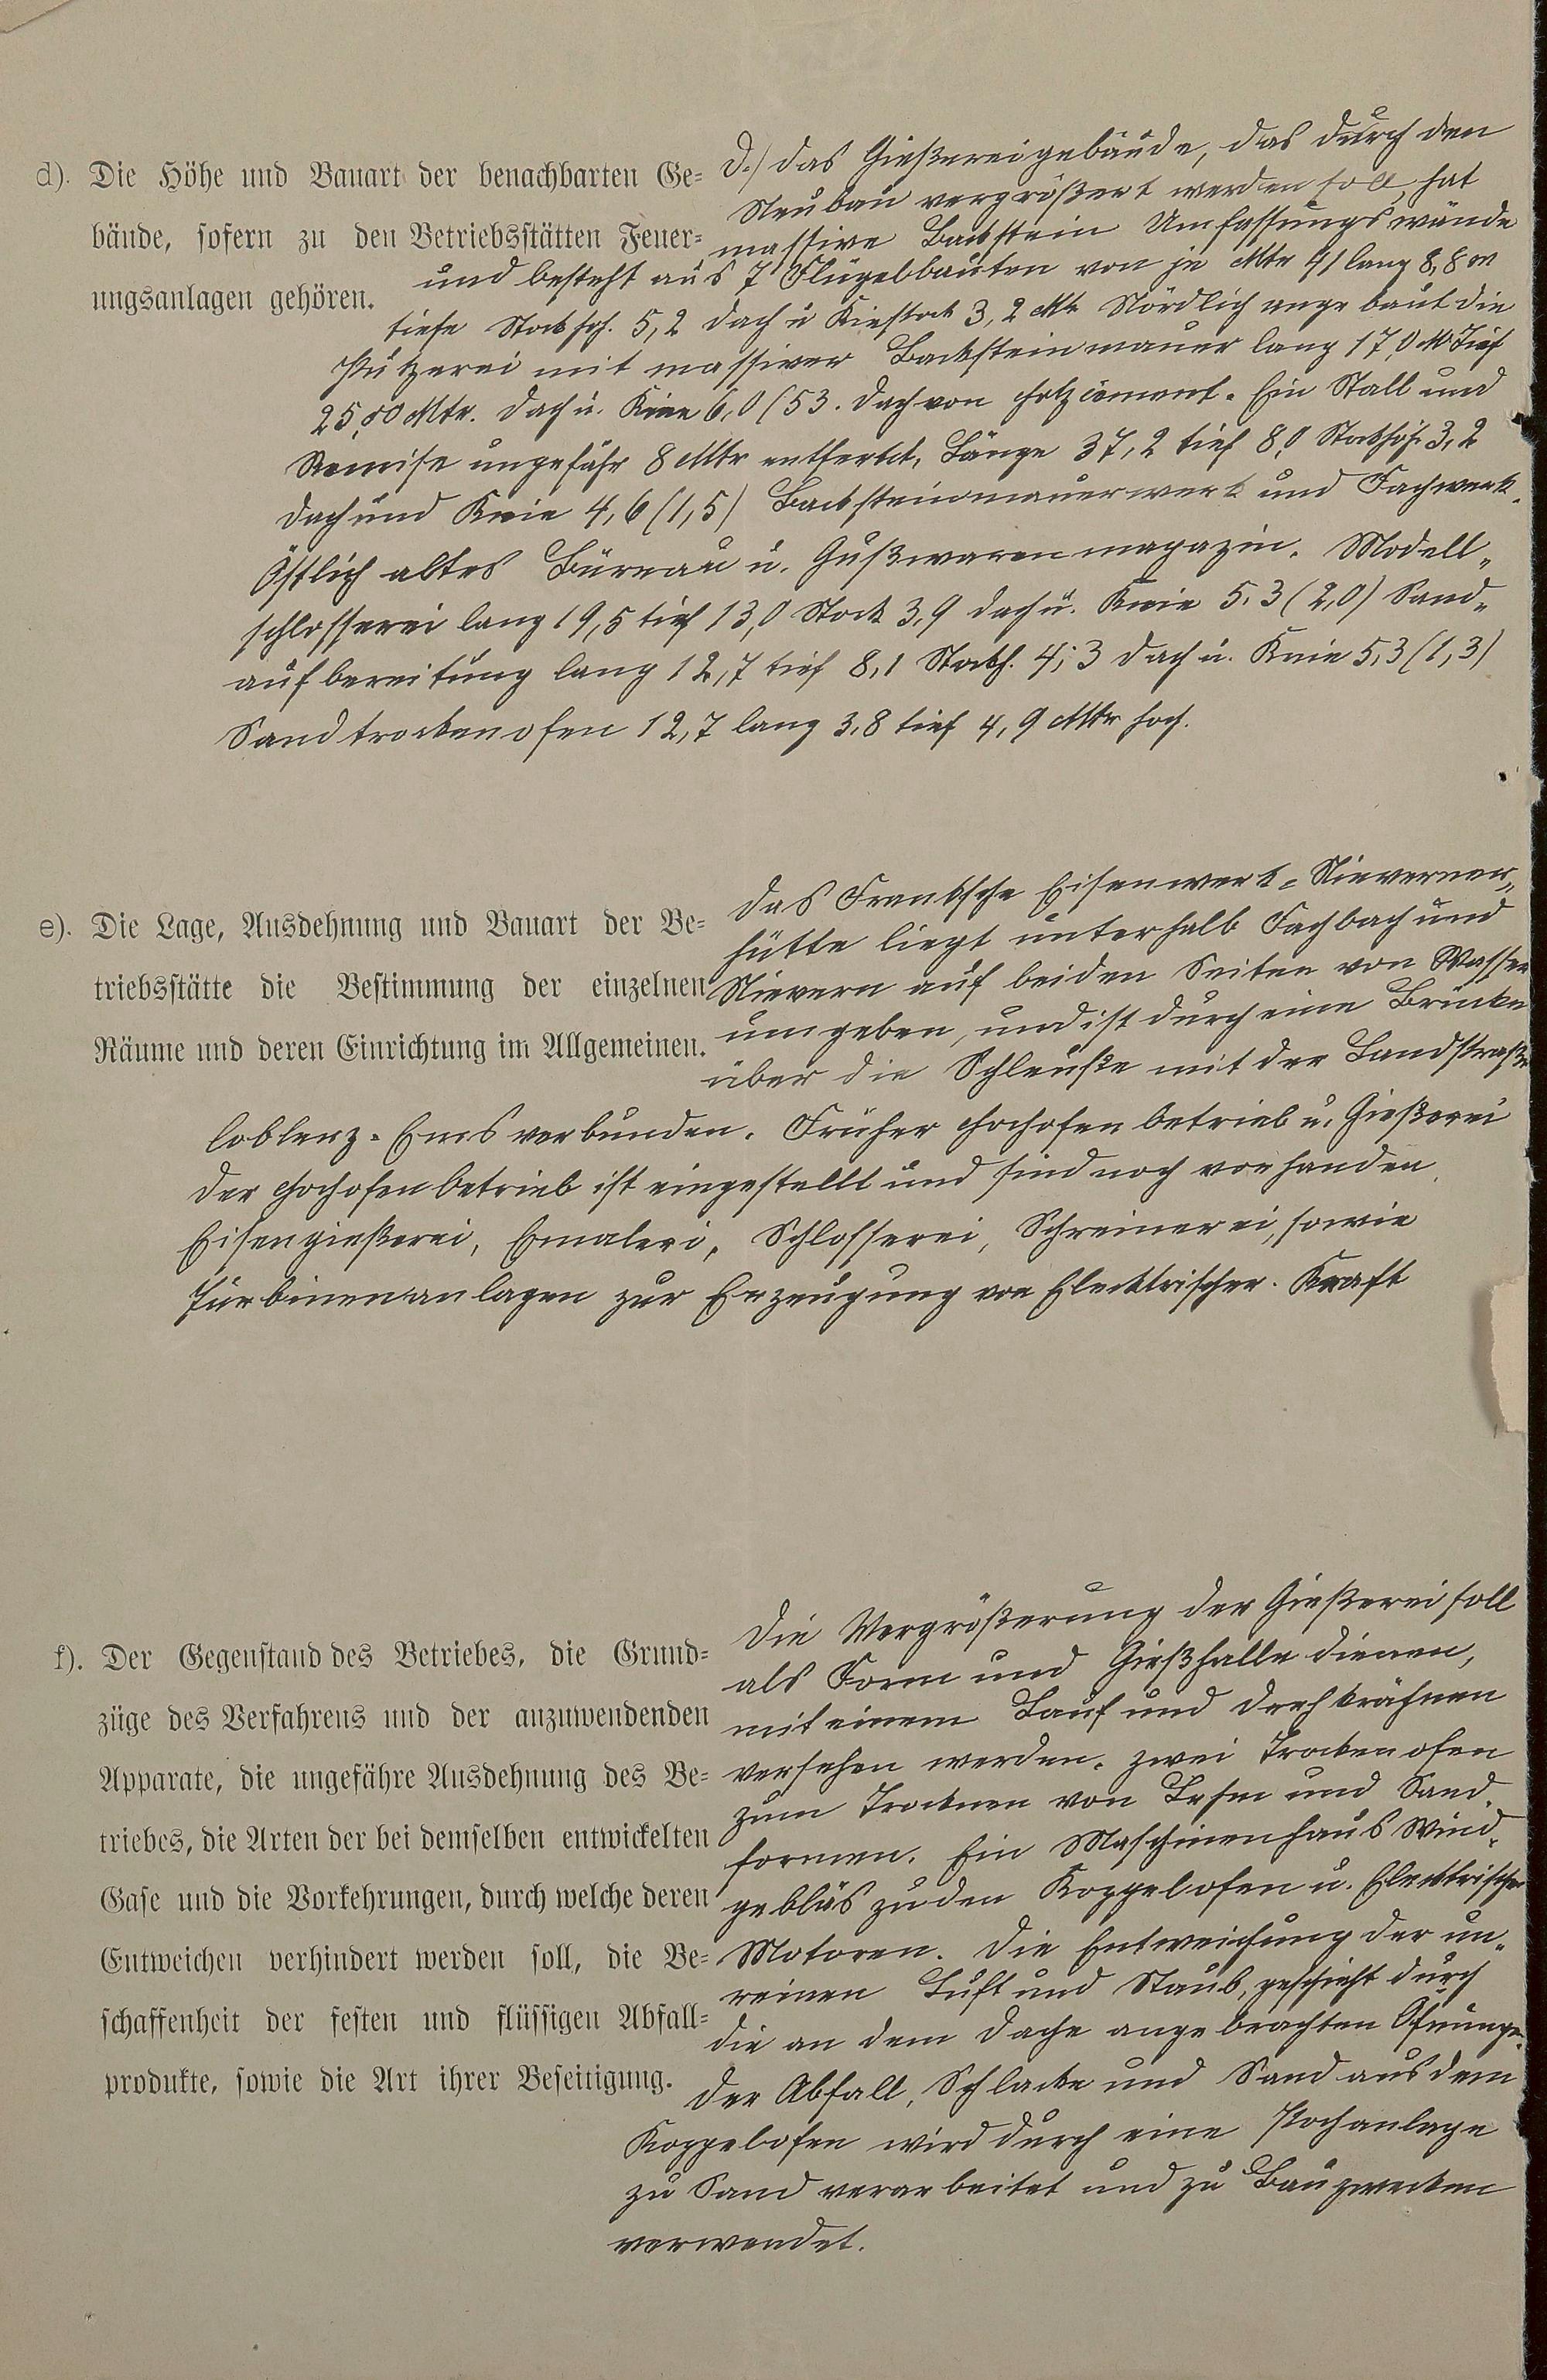 d). Die Höhe und Bauart der benachbarten Ge-
bäude, sofern zu den Betriebsstätten Feuer-
ungsanlagen gehören.
d./ Das Gießereigebäude, das durch den
Neubau vergrößert werden soll, hat
massive Backstein Umfassungswände
und besteht aus 7 Flügelbauten von je Mtr 41 lang 8,8 m
tiefe Stockhh. 5,2 Dach u Kniestock 3,2 Mtr Nördlich angebaut die
Putzerei mit massiver Backsteinmauer lang 17,0 M Tief
25,50 Mtr. Dach u. Knie 6,0 (53. Dach von Holzcement. Ein Stall und
Remise ungefähr 8 Mtr entfernt, Länge 37,2 tief 8,0 Stockhöh 3,2
Dach und Knie 4,6 (1,5) Backsteinmauerwerk und Fachwerk.
Östlich altes Büreau u. Gußwarenmagazin. Modell-
schlosserei lang 19,5 tief 13,0 Stock 3,9 Dach u. Knie 5,3 (2,0) Sand-
aufbereitung lang 12,7 tief 8,1 Stockh. 4,3 Dach u. Knie 5,3 (1,3)
Sandtrockenofen 12,7 lang 3,8 tief 4,9 Mtr hoch.
e). Die Lage, Ausdehnung und Bauart der Be-
triebsstätte die Bestimmung der einzelnen
Räume und deren Einrichtung im Allgemeinen.
Das Franksche Eisenwerk-Nieverner-
hütte liegt unterhalb Fachbach und
Nievern auf beiden Seiten von Wasser
umgeben, und ist durch eine Brücke
über die Schleuße mit der Landstraße
Coblenz-Ems verbunden. Früher Hochofenbetrieb u. Gießerei
der Hochofenbetrieb ist eingestellt und sind noch vorhanden.
Eisengießerei, Emaleri, Schlosserei, Schreinerei, sowie
Turbinenanlagen zur Erzeugung von Elecktrischer. Kraft
f). Der Gegenstand des Betriebes, die Grund-
züge des Verfahrens und der anzuwendenden
Apparate, die ungefähre Ausdehnung des Be-
triebes, die Arten der bei demselben entwickelten
Gase und die Vorkehrungen, durch welche deren
Entweichen verhindert werden soll, die Be-
schaffenheit der festen und flüssigen Abfall-
produkte, sowie die Art ihrer Beseitigung.
Die Vergrößerung der Gießerei soll
als Form und Gießhalle dienen,
mit einem Lauf und Drehkrähnen
versehen werden. zwei Trockenofen
zum Trocknen von Lehm und Sand-
formen. Ein Maschinenhaus Wind-
gebläs zu den Koppelofen u. Elecktrischer
Motoren. Die Entweichung der un-
reinen Luft und Staub, geschieht durch
die an dem Dache angebrachten Öfnungen.
Der Abfall, Schlacke und Sand aus dem
Koppelofen wird durch eine Pochanlage
zu Sand verarbeitet und zu Bauzwecken
verwendet.